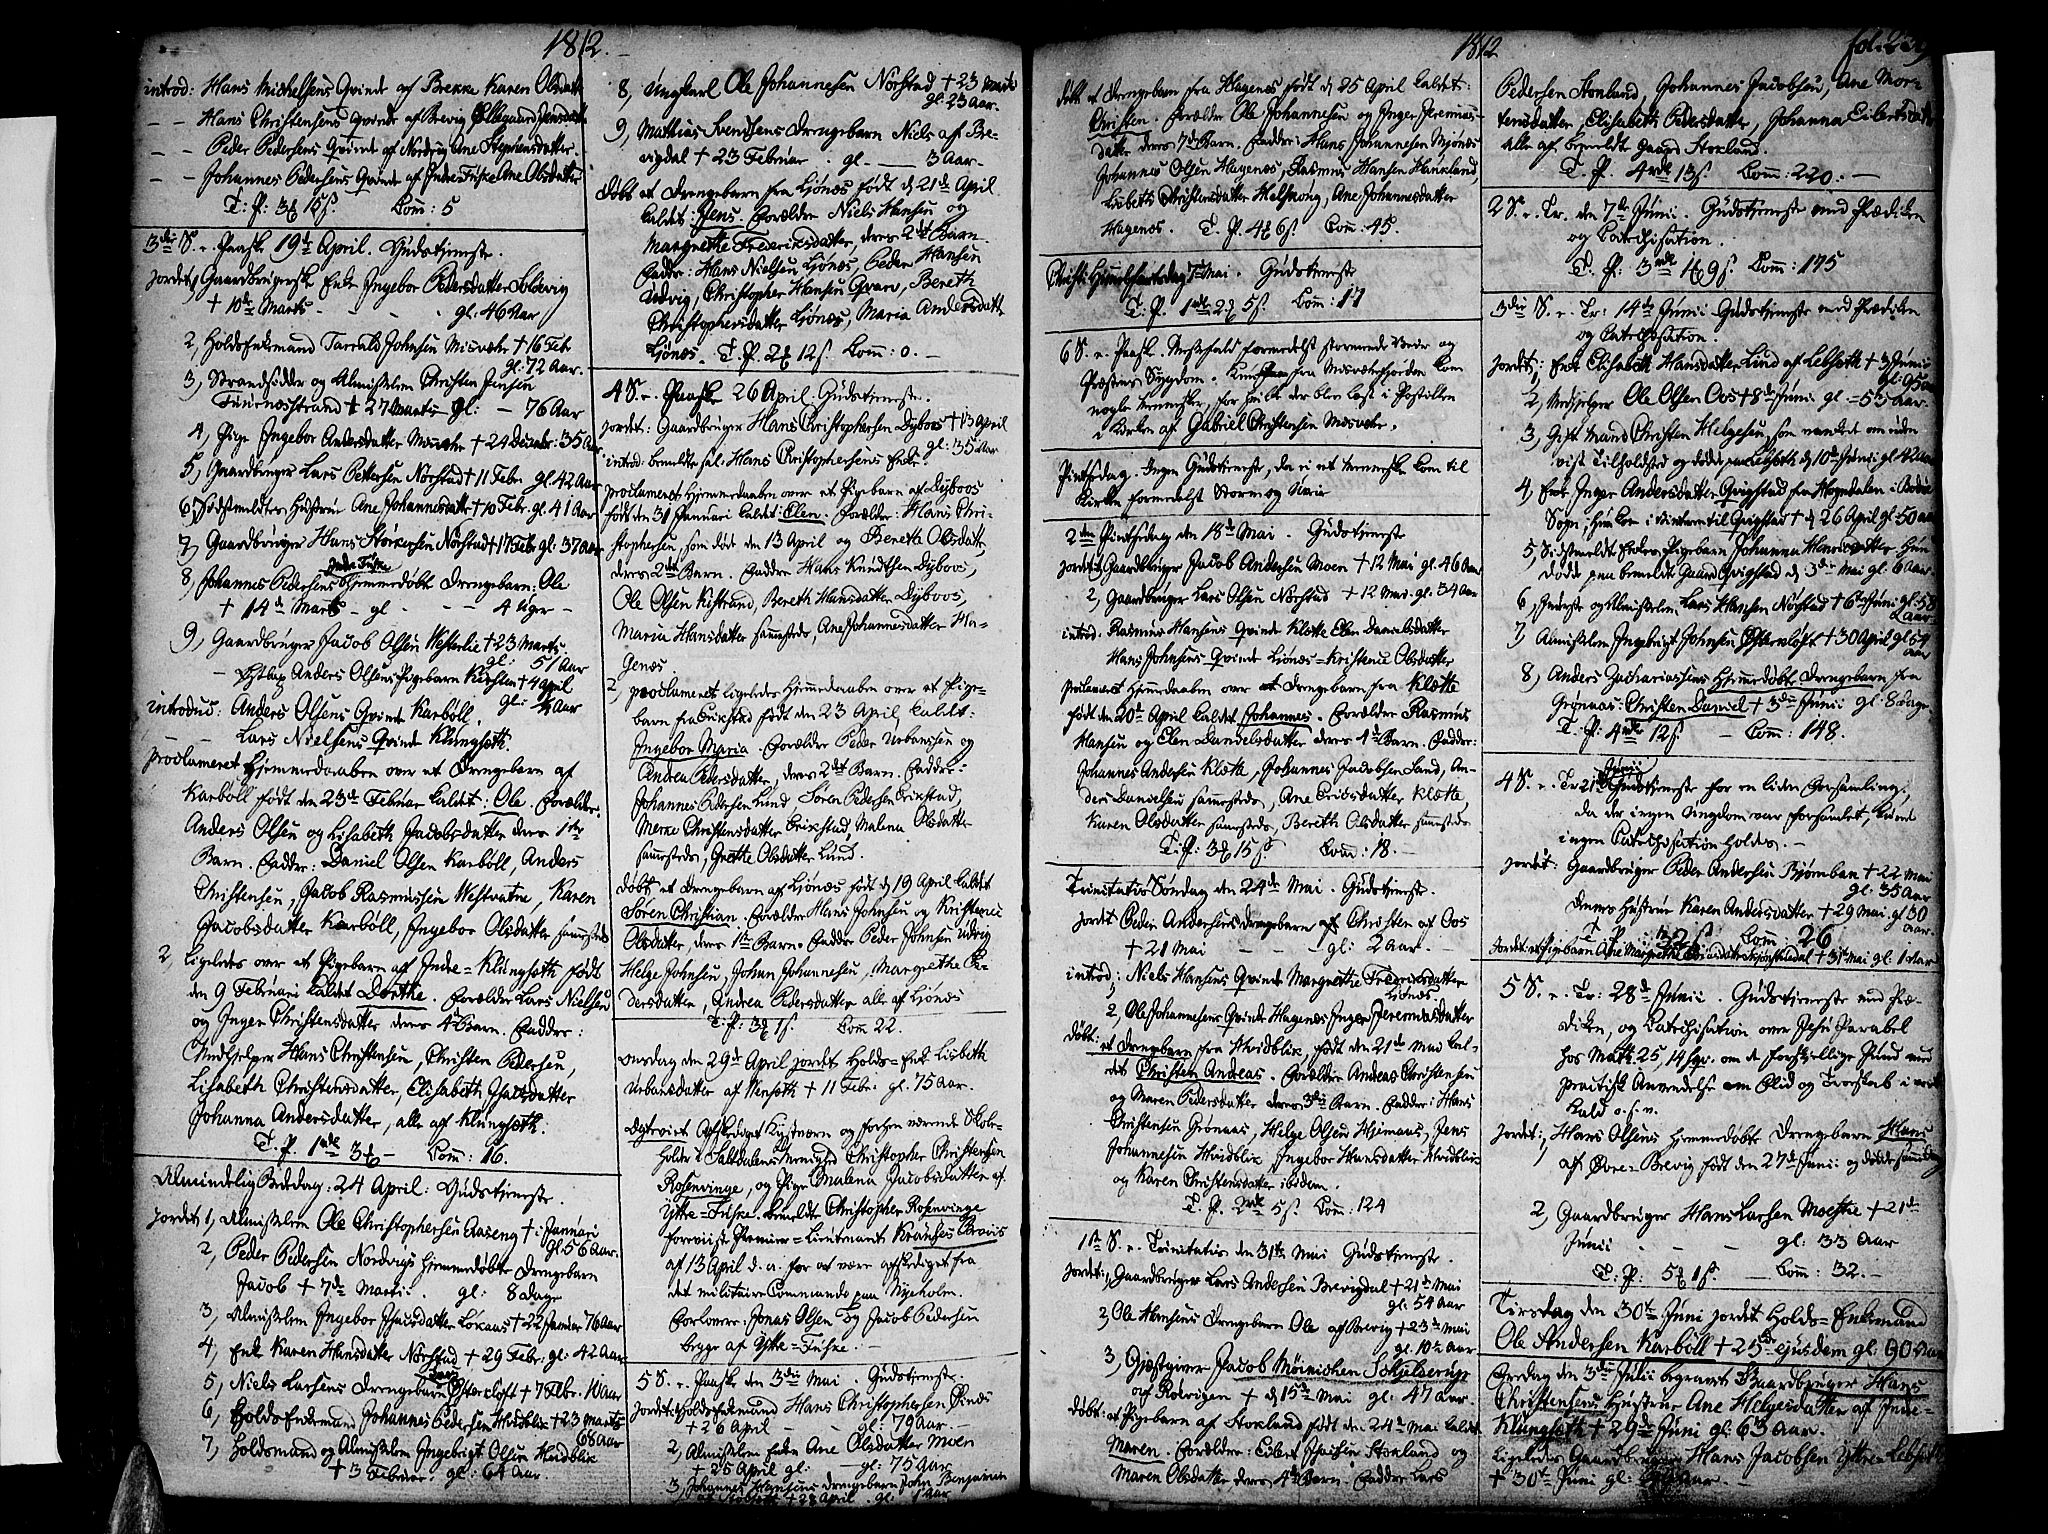 1812.
introd: Hans Michelsens Qvinde af Brekke Karen Olsdatt
— — Hans Christensens Qvinde af Brevig Ellegaard Jensdatt
— — Peder Pedersens Qvinde af Nordvig Ane Stephensdatter.
— — Johannes Pedersens Qvinde af Indre Fuske Ane Olsdatter
T: P: 3 15 s. Com: 5
3die S. e. Paaske 19de April. Gudstjeneste.
Jordet, Gaardbrugerske Enke Ingebor Pedersdatter Solsvig
+ 10de Marts - - - gl: 46 Aar
2, Holds Enkemand Tarrald Johnsen Misvær + 16 Febr
gl: 72 Aar.
3, Strandsidder og Almisselem Christen Jensen
Tuvenæsstrand + 27 Marts gl: — 76 Aar
4, Pige Ingebor Andersdatter Misvær + 24 Decembr: 35 Aar
5, Gaardbruger Lars Pedersen Nørstad + 11 Febr gl. 42 Aar
6, Sidstmeldtes Hustrue Ane Johannesdatter + 10 Febr. gl. 41 Aar
7, Gaardbruger Hans Størkersen Nørstad + 17 Febr gl: 37 Aar
Indre Fuske
8, Johannes Pedersens Hjemmedøbt Drengebarn: Ole
+ 14de Marts - gl - - - 4 Uger -
9, Gaardbruger Jacob Olsen Westerlie + 23 Marts
gl: 51 Aar
— Anders Olsens Pigebarn Kirsten + 4 April
gl: ½ Aar
introduc: Anders Olsens Qvinde Karböll.
— — Lars Nielsens Qvinde Klungseth.
proclameret Hjemmedaaben over et Drengebarn af
Karböll født den 23de Februar kaldet: Ole. Forældre:
Anders Olsen og Lisabeth Jacobsdatter deres 1ste
Barn. Faddr: Daniel Olsen Karböll, Anders
Christensen, Jacob Rasmussen Westvatne, Karen
Jacobsdatter Karböll, Ingebor Olsdatter sammesteds
2, Ligeledes over et Pigebarn af Indre-Klungseth født
den 9 Februari kaldet Dorthe. Forældre Lars Nielsen
og Inger Christensdatter deres 4de Barn. Faddre:
Medhjelper Hans Christensen, Christen Pedersen,
Lisabeth Christensdatter, Elisabeth Isaksdatter
Johanna Andersdatter, alle af Klungseth:
T. P. 1 rdl 3 — Com: 16.
Almindelig Bededag: 24 April: Gudstjeneste.
Jordet 1, Almisselem Ole Christophersen Aaseng + i Januari
gl 56 Aar.
2, Peder Pedersen Nordvigs Hjemmedøbte Drengebarn
Jacob + 7de Marti. gl: 8 Dage
3, Almisselem Ingebor Isacsdatter Løkaas + 22 Januar 76 Aar
4, Enke Karen Hansdatter Nørstad + 29 Febr: gl: 42 Aar
5, Niels Larsens Drengebarn Lars Østerløft + 7 Febr. 10 Aar
6, Holds Enkemand Johannes Pedersen Hvidblik + 23 Marts
68 Aar
7, Holdsmand og Almisselem Ingebrigt Olsen Hvidblik
+ 3 Februar gl: 64 Aar.
8, Ungkarl Ole Johannesen Nörstad + 23 Marts
gl: 23 Aar.
9, Mathias Svendsens Drengebarn Niels af Bre-
vigdal + 23 Februar. gl. — 3 Aar-
Døbt et Drengebarn fra Ljönæs født d 21de April
kaldet: Jens. Forældre Niels Hansen og
Margrethe Frederiksdatter, deres 2det Barn.
Faddr: Hans Nielsen Ljönes, Peder Hansen
Udvig, Christopher Hansen Qvarv, Bereth
Christophersdatter Ljönæs, Maria Andersdatt
Ljönæs. T. P. 2 12 s. Com: 0. —
4 S. e. Paaske 26 April. Gudstjeneste.
Jordet: Gaardbruger Hans Christophersen Dyboos + 13 April
gl: 35 Aar
introd: bemeldte sal: Hans Christophersens Enke.
proclameret Hjemmedaaben over et Pigebarn af Dyboos
født den 31 Januari kaldet: Elen. Forældre: Hans Chri-
stophersen som døde den 13 April og Beretha Olsdatter,
deres 2det Barn. Faddre Hans Knudtsen Dyboos,
Ole Olsen Kistrand, Bereth Hansdatter Dyboos,
Maria Hansdatter sammesteds, Ane Johannesdatter Ha-
genæs.
2, proclameret ligeledes Hjemmedaaben over et Pige-
barn fra Erikstad født den 23 April kaldt:
Ingebor Maria. Forældre Peder Urbansen og
Andrea Pedersdatter, deres 2det Barn. Faddre:
Johannes Pedersen Lund, Sören Pedersen Erikstad,
Merne Christensdatter Erikstad, Malena Olsdatter
sammesteds, Grethe Olsdatter Lund.
Døbt et Drengebarn af Ljönæs født d 19 April kaldet
Sören Christian. Forældre Hans Johnsen og Kristence
Olsdatter, deres 1ste Barn. Faddr Peder Johnsen Udvig
Helge Johnsen, Johan Johannesen, Margrethe Pe-
dersdatter, Andrea Pedersdatter alle af Ljönæs
T. P: 3 1 s. Com 22.
Onsdag den 29de April jordet Holds-Enke Lisbeth
Urbansdatter af Wenseth + 11 Febr: gl. 75 Aar.
Egteviet Afskediget Kystværn og forhen værende Skole-
holder i Saltdalens Menighed Christopher Christensen
Rosenvinge, og Pige Malena Jacobsdatter af
Ytre-Fuske. bemeldte Christopher Rosenvinge
foreviiste Premier-Lieutenant Krauses Beviis
af 13 April d. a. for at være afskediget fra
det militaire Commando paa Nyeholm.
Forlovere: Jonas Olsen og Jacob Pedersen
begge af Ytre-Fuske. —
5 S. e. Paaske den 3die Mai. Gudstjeneste.
Jordet: Holds Enkemand Hans Christophersen Sines
+ 26 April - - gl: 79 Aar.
2, Almisselem Enke Ane Olsdatter Moen
+ 25 April gl. — gl: 75 Aar
3, Johannes Johnsens Drengebarn John Benjamin
+ 28 April. gl: 1 Aar
1812
fol: 239
Døbt et Drengebarn fra Hagenæs født d 25 April kaldet:
Christen. Forældre Ole Johannesen og Inger Jeremias-
datter deres 7de Barn. Faddr: Hans Johannesen Mjönes
Johannes Olsen Hagenæs, Rasmus Hansen Haukland,
Lisbeth Christensdatter Helskong, Ane Johannesdatter
Hagenæs. T. P. 4 6 s. Com: 45.
Christi Himmelfartsdag 7de Mai. Gudstjeneste
T: P. 1 rdl 2 5 s. Com: 17
6 S. e. Paask. Messefald formedelst stormende Veir og
Præstens Sygdom. Kun fra Misværfjorden kom
nogle Mennesker, for hvilke der blev læst i Postillen
i Kirken af Gabriel Christensen Misvær.
Pintsedag. Ingen Gudstjeneste, da ei et Menneske kom til
Kirken formedelst Storm og Uveir
2den Pintsedag den 18de Mai. Gudstjeneste
Jordet: Gaardbruger Jacob Andersen Moen + 12 Mai gl. 46 Aar
2, Gaardbruger Lars Olsen Nörstad + 12 Mai. gl: 34 Aar
introd. Rasmus Hansens Qvinde Kløtte Elen Danielsdatter
Hans Johnsens Qvinde Ljönæs - Kristence Olsdatter
proclameret Hjemmedaaben over et Drengebarn fra Klætte
født den 20de April kaldet Johannes. Forældre Rasmus
Hansen og Elen Danielsdatter deres 4de Barn. Faddr:
Johannes Andersen Klætte, Johannes Jacobsen Sand, An-
ders Danielsen sammesteds, Ane Ericsdatter Klætte,
Karen Olsdatter sammesteds, Bereth Olsdatter sammesteds
T: P: 3 15 s Com: 18. —
Trinitatis Søndag den 24de Mai. Gudstjeneste.
Jordet Peder Andersens Drengebarn Christen af Oos
+ 21 Mai — gl: 2 Aar. —
introd: Niels Hansens Qvinde Margrethe Fredriksdatter
Ljönæs
2, Ole Johannesens Qvinde Hagenæs Inger Jeremiasdatter
Døbt: et Drengebarn fra Hvidblik, født den 21de Mai kal-
det Christen Andreas. Forældre Andreas Christensen
og Maren Pedersdatter deres 3die Barn. Faddr: Hans
Christensen Grönaas, Helge Olsen Hjemaas, Jens
Johannesen Hvidblik, Ingebor Hansdatter Hvidblik
og Karen Christensdatter ibidem.
T. P. 2 rdl 5 s. Com: 124
1ste S. e. Trinitatis den 31te Mai Gudstjeneste.
Jordet: Gaardbruger Lars Andersen Brevigdal + 21de Mai
gl: 54 Aar
2, Ole Hansens Drengebarn Ole af Brevig + 23de Mai
gl. 10 Aar
3, Gjestgiver Jacob Mönichen Schjelderup
af Rosvigen + d 15de Mai gl: 47 Aar.
Døbt: et Pigebarn af Stokland født den 24de Mai kaldet
Maren. Forældre: Eibert Isachsen Stokland og
Maren Olsdatter deres 4de Barn. Faddr Lars
1812
Pedersen Stokland, Johannes Jacobsen, Ane Mor-
tensdatter, Elisabeth Pedersdatter, Johanna Eibertsdatter
alle af bemeldt Gaard Stokland.
T. P. 4 rdl 13 s. Com: 220. —
2 S. e. Tr. den 7de Junii. Gudstjeneste med Prædiken
og Catechisation.
T. P: 3 rdl 1 9 s. Com: 175
3die S. e. Tr: 14de Junii Gudstjeneste med Prædiken
og Catechisation.
Jordet: Enke Elisabeth Hansdatter Lund af Løbseth + 3 Junii
gl: 95 Aar
2, Medhjelper Ole Olsen Oos + 8de Junii gl = 53 Aar.
3, Gift Mand Christen Helgesen som vankede om uden
vist Tilholdssted og døde paa Løbseth d 10de Junii gl 42 Aar
4, Enke Inger Andersdatter Qvigstad fra Hogndalen i Bodøe
Sogn; hun kom i Vinteren til Qvigstad + d 26 April gl: 50 Aar
5, Sidstmeldt Enkes Pigebarn Johanna Hansdatter hun
døde paa bemeldt Gaard Qvigstad d 3die Mai gl: 6 Aar.
6, Inderste og Almisselem Lars Hansen Nörstad + 6te Junii gl: 58
Aar.
7, Almisselem Ingebrigt Johnsen Østerløft + 30 April gl 64
Aar
8, Anders Zachariassens Hjemmedøbte Drengebarn fra
Grønaas: Christen Daniel + 3die Junii gl: 8 Dage.
T: P. 4 rdl 12 s — Com: 148.
4 S. e. Tr 21de Junii Gudstjeneste for en liden Forsamling,
da der ingen Ungdom var forsamlet, kunde
ingen Catechisation holdes. —
Jordet: Gaardbruger Peder Andersen Björnbak + 22 Mai
gl: 35 Aar
Dennes Hustrue Karen Andersdatter + 29 Mai. gl 30
Aar.
Com 26
Jordet: et Pigebarn Ane Margrethe + 31te Mai gl: 1 Aar
5 S. e. Tr: 28de Junii. Gudstjeneste med Præ-
diken, og Catechisation over Jesu Parabel
hos Math. 25, 14 sqv. om de forskjellige Pund med
practisk Anvendelse om Flid og Troskab i vort
Kald o. s. v.
Jordet: 1, Hans Olsens Hjemmedøbte Drengebarn Hans
af Øvre-Brevig født den 27de Junii og døde samme Dag
2, Gaardbruger Hans Larsen Moeske + 21de
Junii — — gl: 33 Aar
T: P: 5 1 s. — Com: 32. —
Tirsdag den 30te Junii jordet Holds-Enkemand
Ole Andersen Karböll + 25de ejusdem gl. 90 Aar
Fredag den 3die Julii begravet Gaardbruger Hans
Christensens Hustrue Ane Helgesdatter af Indre-
Klungseth + 29de Junii gl: 63 Aar.
Ligeledes Gaardbruger Hans Jacobsen Ytre-Løbseth
+ 30te Junii gl: Aar. —